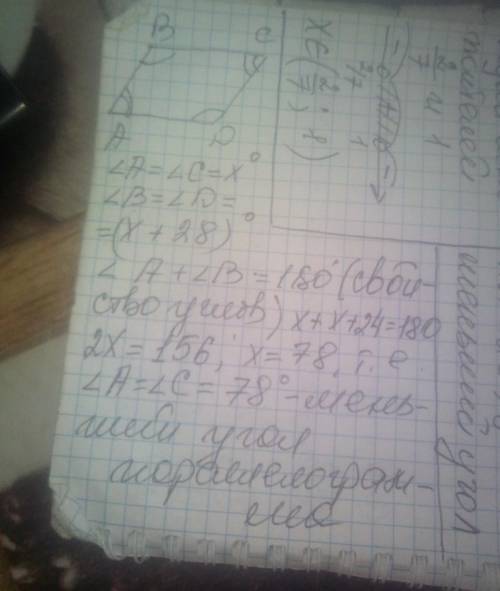 B C
A D
∠A=∠C=x°
∠B=∠D=
=(x+28)°
∠A+∠B=180°(свой-
ство углов) x+x+24=180
2x=156; x=78, т.е.
∠A=∠C=78°-мень-
ший угол
параллелограм-
ма
жителей
2/7 и 1
2/7 1
x∈(2/7; 1)
меньший угол